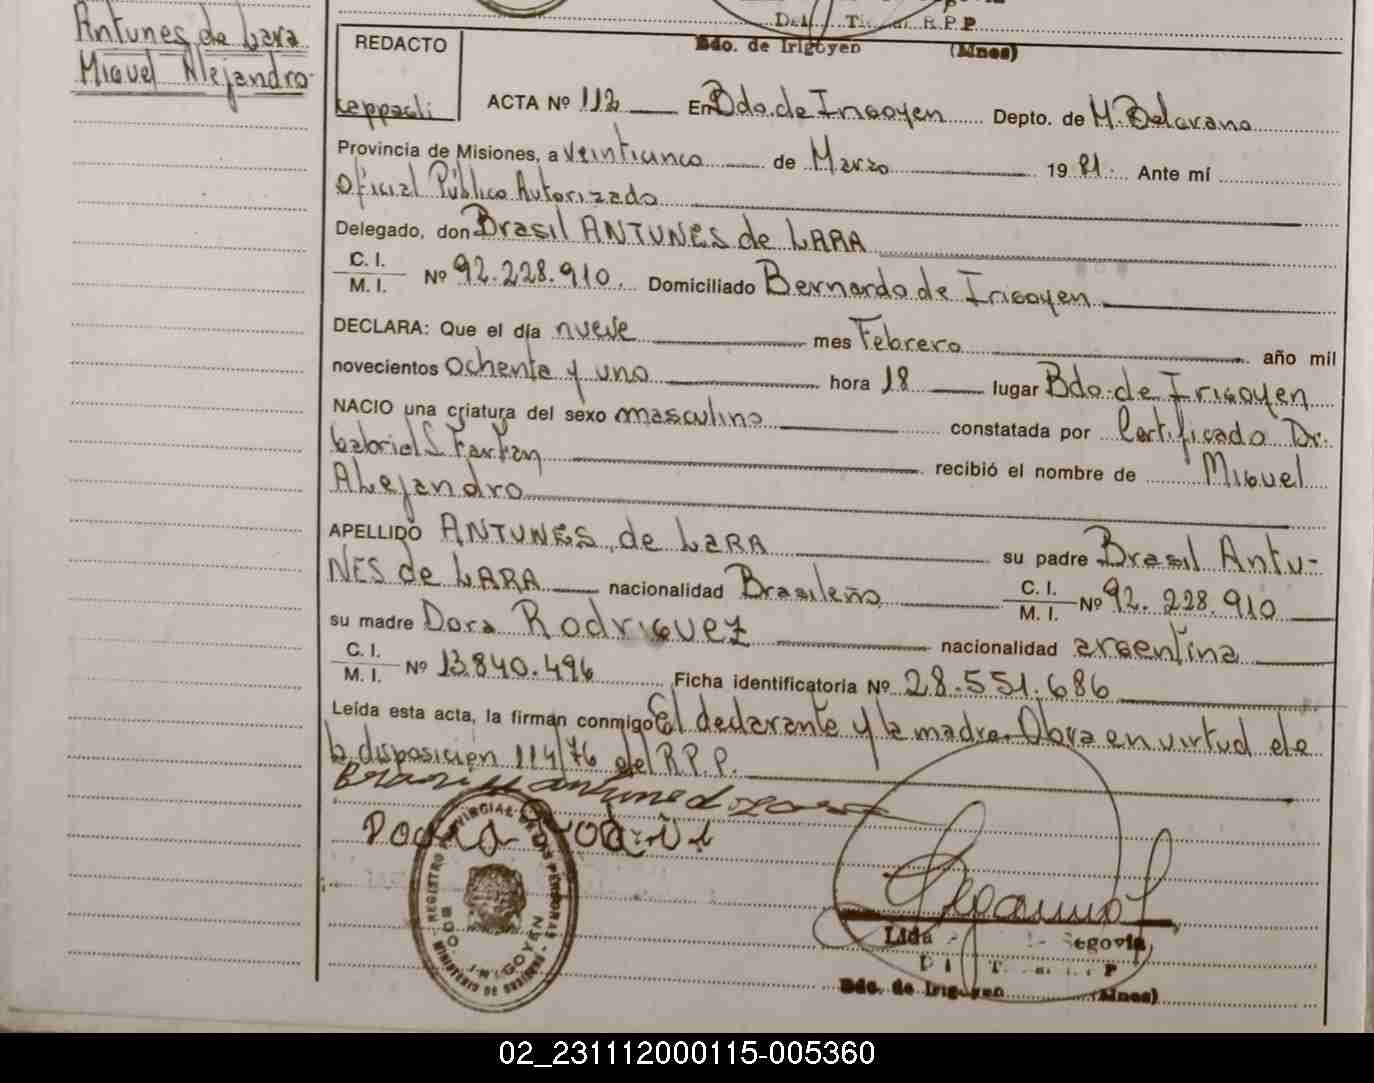 Del. R.P.P
Bdo. de Irigoyen (Mnes)
Antunes de Lara
Miguel Alejandro
REDACTO
ACTA Nº 112 En Bdo. de Irigoyen Depto. de M. Belgrano
Provincia de Misiones, a veinticinco de Marzo 19 81. Ante mí
Oficial Público Autorizado
Delegado, don Brasil ANTUNES de LARA
C. I.
M. I. Nº 92.228.910. Domiciliado Bernardo de Irigoyen
DECLARA: Que el día nueve mes Febrero año mil
novecientos ochenta y uno hora 18 lugar Bdo. de Irigoyen
NACIO una criatura del sexo masculino constatada por Certificado Dr.
Gabriel S. Farfan recibió el nombre de Miguel
Alejandro
APELLIDO ANTUNES de LARA su padre Brasil Antu-
NES de LARA nacionalidad Brasileño C. I.
M. I. Nº 92.228.910
su madre Dora Rodriguez nacionalidad argentina
C. I.
M. I. Nº 13.840.496 Ficha identificatoria Nº 28.551.686
Leída esta acta, la firman conmigo El declarante y la madre. Obra en virtud de
la disposición 114/76 del R.P.P.
REGISTRO PROVINCIAL DE LAS PERSONAS
MINISTERIO DE GOBIERNO
BDO. IRIGOYEN
Lida Segovia
Bdo. de Irigoyen (Mnes)
02_231112000115-005360